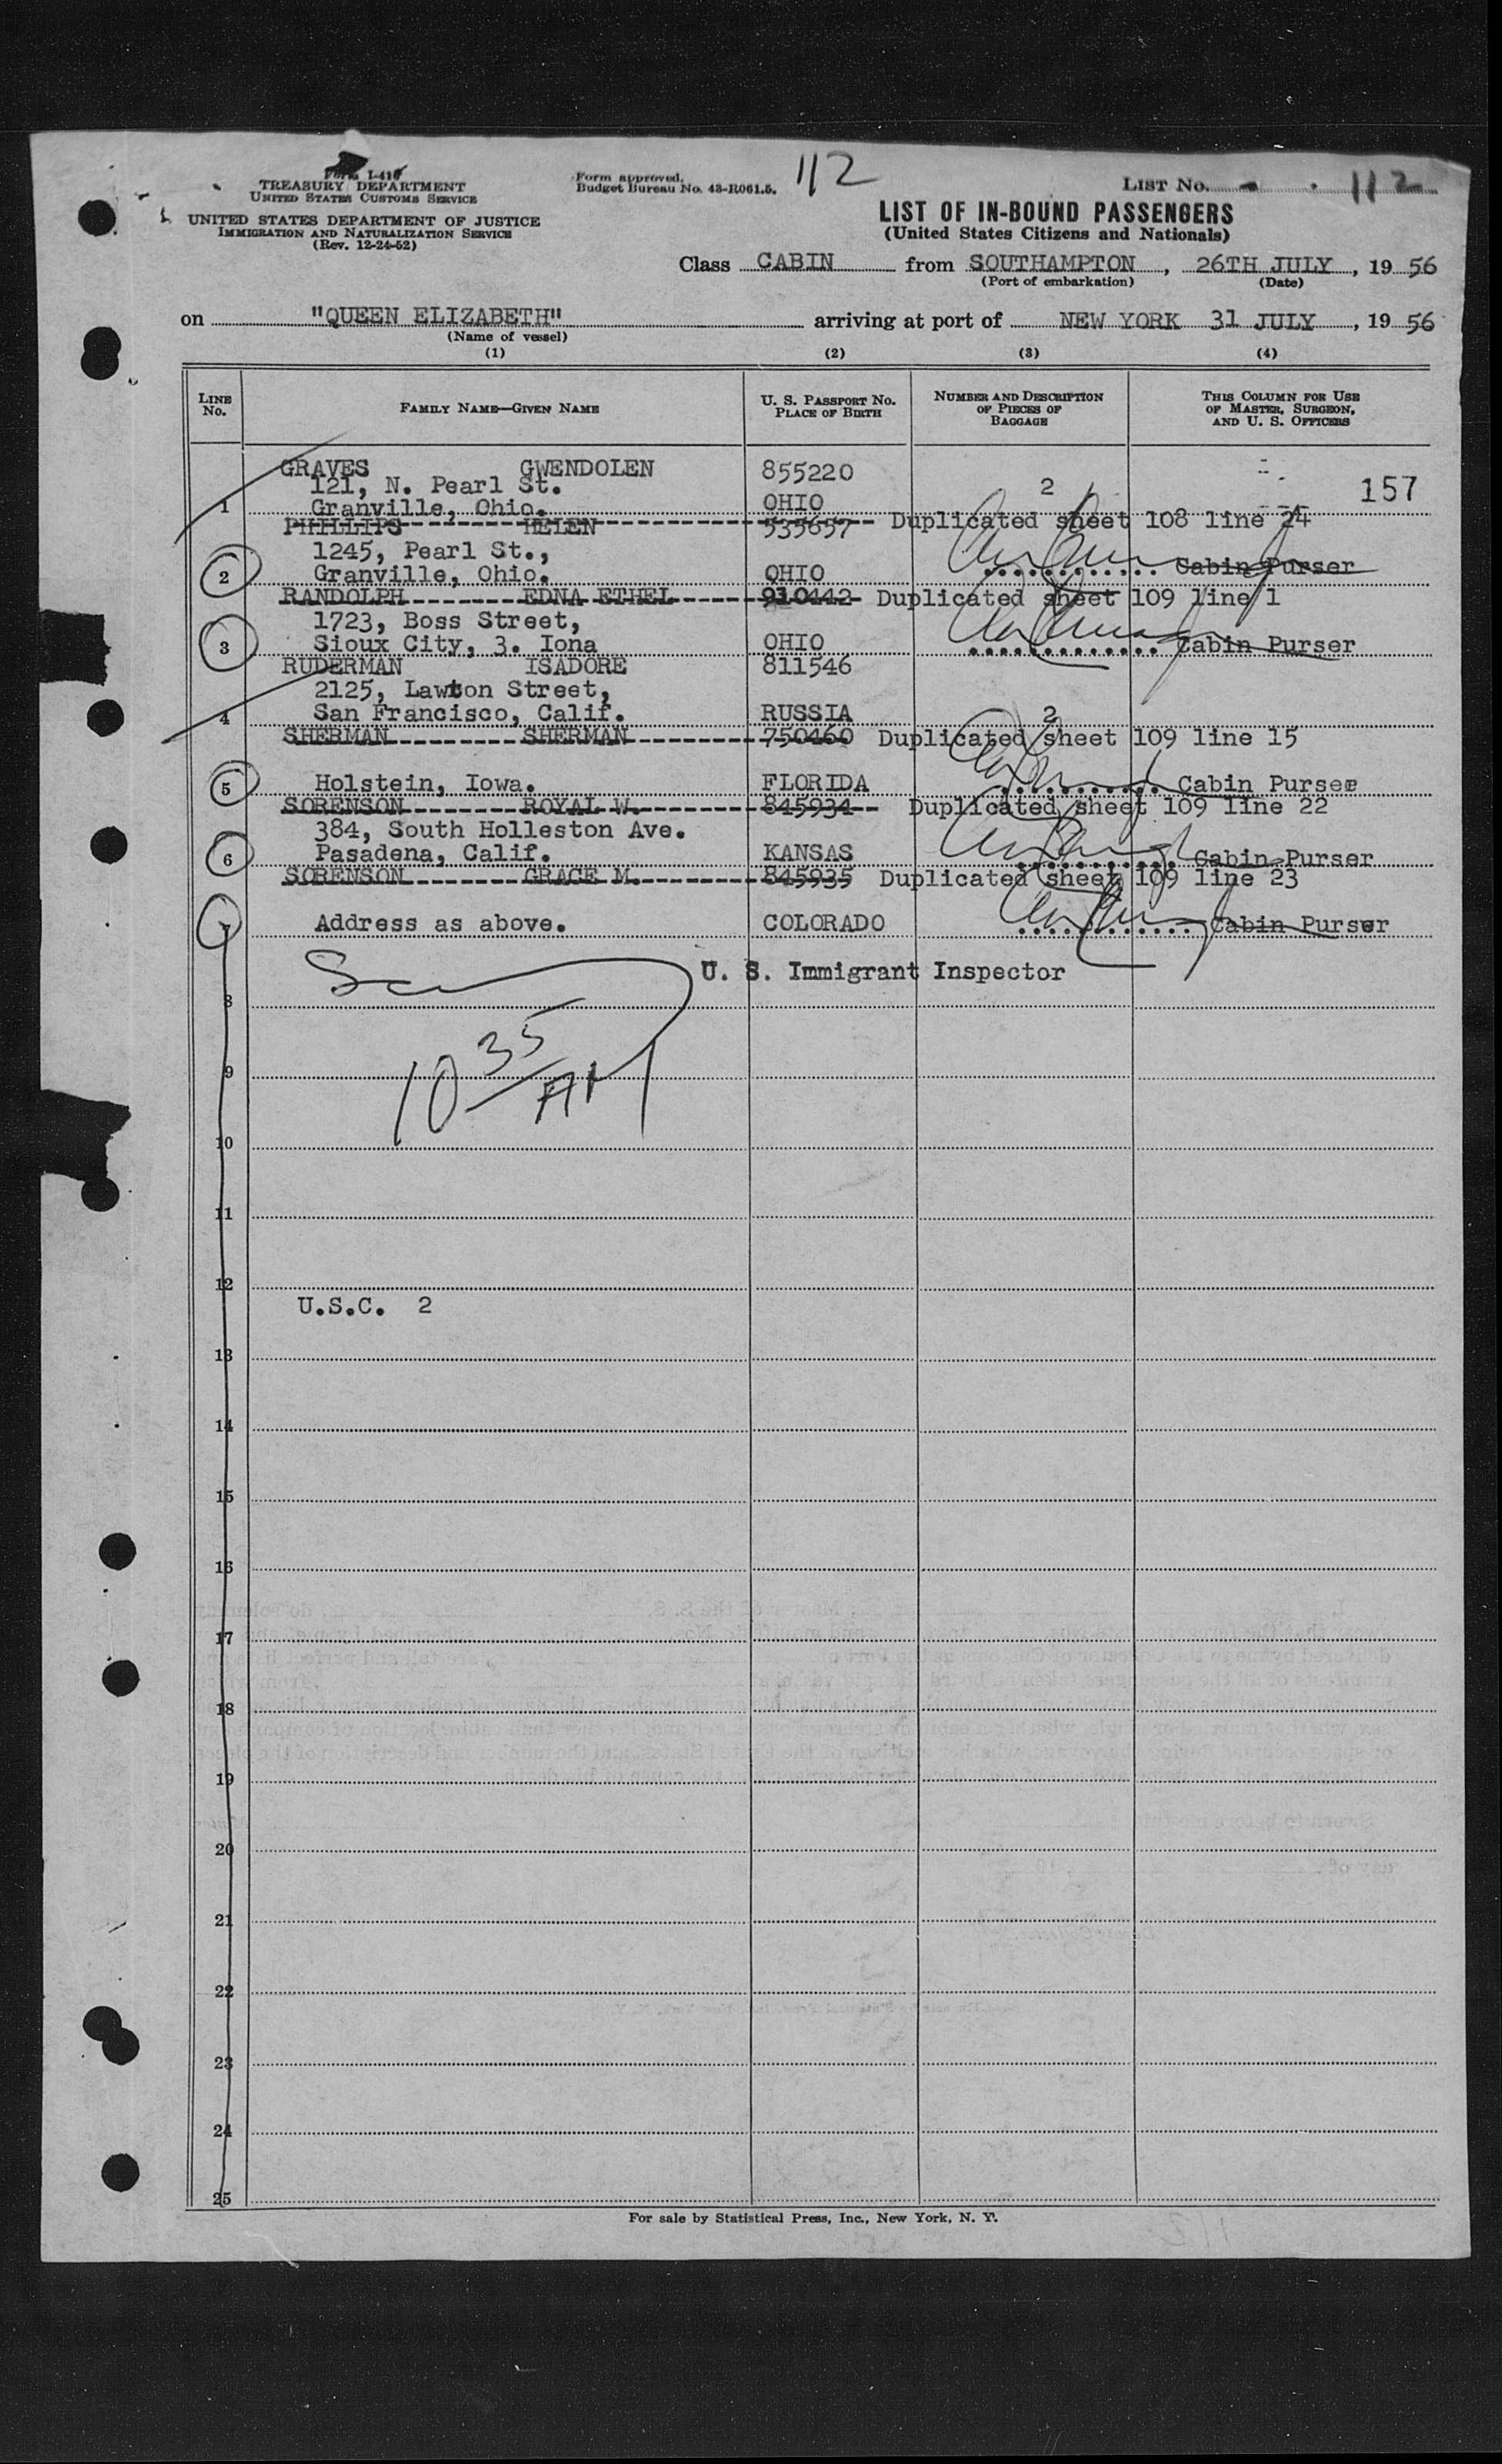 112
Form I-416
TREASURY DEPARTMENT
UNITED STATES CUSTOMS SERVICE
Form approved.
Budget Bureau No. 43-R061.5.
LIST No. 112
UNITED STATES DEPARTMENT OF JUSTICE
IMMIGRATION AND NATURALIZATION SERVICE
(Rev. 12-24-52)
LIST OF IN-BOUND PASSENGERS
(United States Citizens and Nationals)
Class CABIN from SOUTHAMPTON, 26TH JULY, 1956
(Port of embarkation) (Date)
on "QUEEN ELIZABETH" arriving at port of NEW YORK 31 JULY, 1956
(Name of vessel)
(1) (2) (3) (4)
LINE No. FAMILY NAME—GIVEN NAME U. S. PASSPORT No. PLACE OF BIRTH NUMBER AND DESCRIPTION OF PIECES OF BAGGAGE THIS COLUMN FOR USE OF MASTER, SURGEON, AND U. S. OFFICERS
GRAVES GWENDOLEN 855220
121, N. Pearl St. 2 157
1 Granville, Ohio. OHIO
PHILLIPS HELEN 535657 Duplicated sheet 108 line 24
1245, Pearl St.,
2 Granville, Ohio. OHIO Cabin Purser
RANDOLPH EDNA ETHEL 910442 Duplicated sheet 109 line 1
1723, Boss Street,
3 Sioux City, 3. Iona OHIO Cabin Purser
RUDERMAN ISADORE 811546
2125, Lawton Street,
4 San Francisco, Calif. RUSSIA 2
SHERMAN SHERMAN 750460 Duplicated sheet 109 line 15
5 Holstein, Iowa. FLORIDA Cabin Purser
SORENSON ROYAL W. 845934 Duplicated sheet 109 line 22
384, South Holleston Ave.
6 Pasadena, Calif. KANSAS Cabin Purser
SORENSON GRACE M. 845935 Duplicated sheet 109 line 23
7 Address as above. COLORADO Cabin Purser
U. S. Immigrant Inspector
8
10 35/AM
9
10
11
12
U.S.C. 2
13
14
15
16
17
18
19
20
21
22
23
24
25
For sale by Statistical Press, Inc., New York, N. Y.